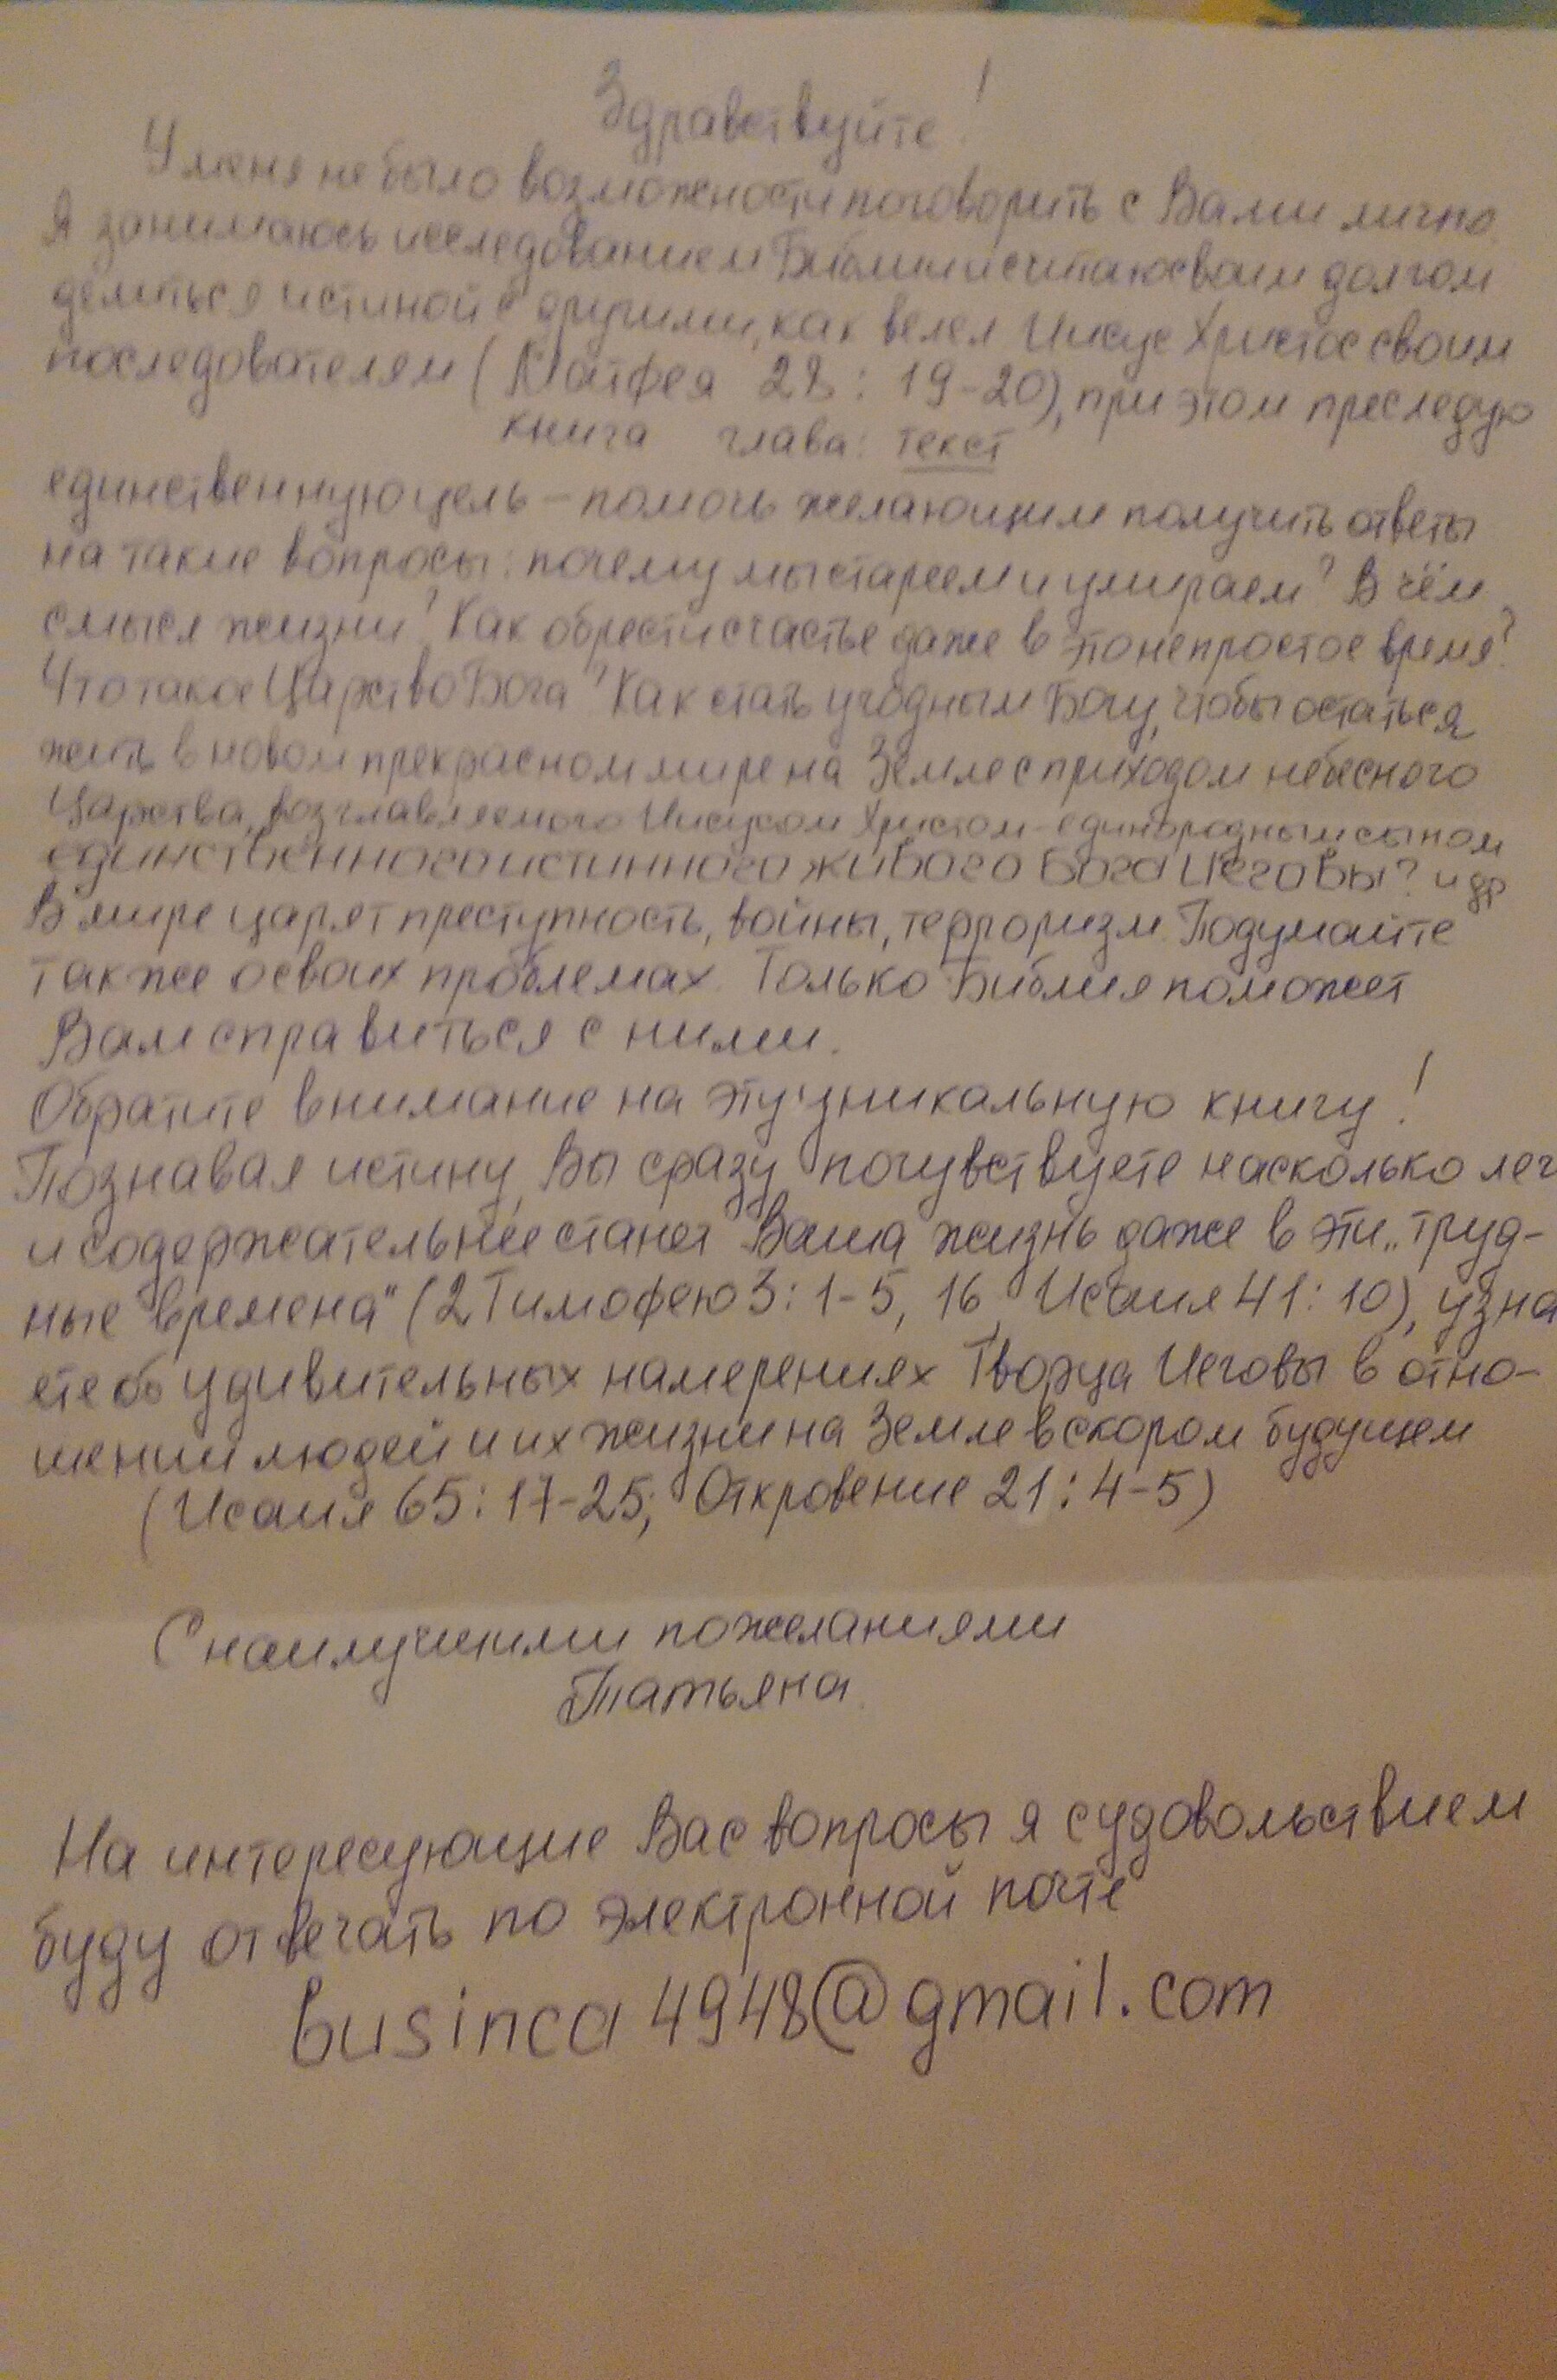 Здравствуйте!
У меня не было возможности поговорить с Вами лично.
Я занимаюсь исследованием Библии и считаю своим долгом
делиться истиной с другими, как велел Иисус Христос своим
последователям (Матфея 28: 19-20), при этом преследую
книга глава: текст
единственную цель – помочь желающим получить ответы
на такие вопросы: почему мы стареем и умираем? В чём
смысл жизни? Как обрести счастье даже в это непростое время?
Что такое Царство Бога? Как стать угодным Богу, чтобы остаться
жить в новом прекрасном мире на Земле с приходом небесного
Царства, возглавляемого Иисусом Христом - единородным сыном
единственного истинного живого Бога Иеговы? и др
В мире царят преступность, войны, терроризм. Подумайте
также о своих проблемах. Только Библия поможет
Вам справиться с ними.
Обратите внимание на эту уникальную книгу!
Познавая истину, Вы сразу почувствуете насколько лег
и содержательнее станет Ваша жизнь даже в эти „труд-
ные времена" (2 Тимофею 3: 1-5, 16, Исаия 41: 10), узна
ете об удивительных намерениях Творца Иеговы в отно-
шении людей и их жизни на Земле в скором будущем
(Исаия 65: 17-25; Откровение 21: 4-5)
С наилучшими пожеланиями
Татьяна.
На интересующие Вас вопросы я с удовольствием
буду отвечать по электронной почте
businca4948@gmail.com